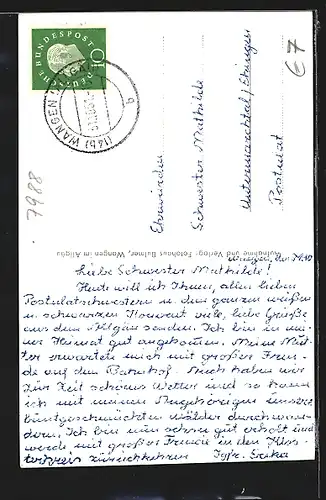 DEUTSCHE BUNDESPOST
10
(14b) WANGEN (ALLGÄU)
Ehrwürden
Schwester Mathilde
Untermarchtal/Ehingen
Postulat
€7
7988
Aufnahme und Verlag: Fotohaus Balmer, Wangen im Allgäu
Wangen, den
Liebe Schwester Mathilde!
Heute will ich Ihnen, allen lieben
Postulatschwestern u. dem ganzen weißen
u. schwarzen Konvent viele, liebe Grüße
aus dem Allgäu senden. Ich bin in mei-
ner Heimat gut angekommen. Meine Mut-
ter erwartete mich mit großer Freu-
de auf dem Bahnhof. Auch haben wir
zur Zeit schönes Wetter und so kann
ich mit meinen Angehörigen unsere
buntgeschmückten Wälder durchwan-
dern. Ich bin nun schon gut erholt und
werde mit großer Freude in den Klos-
terkreis zurückkehren